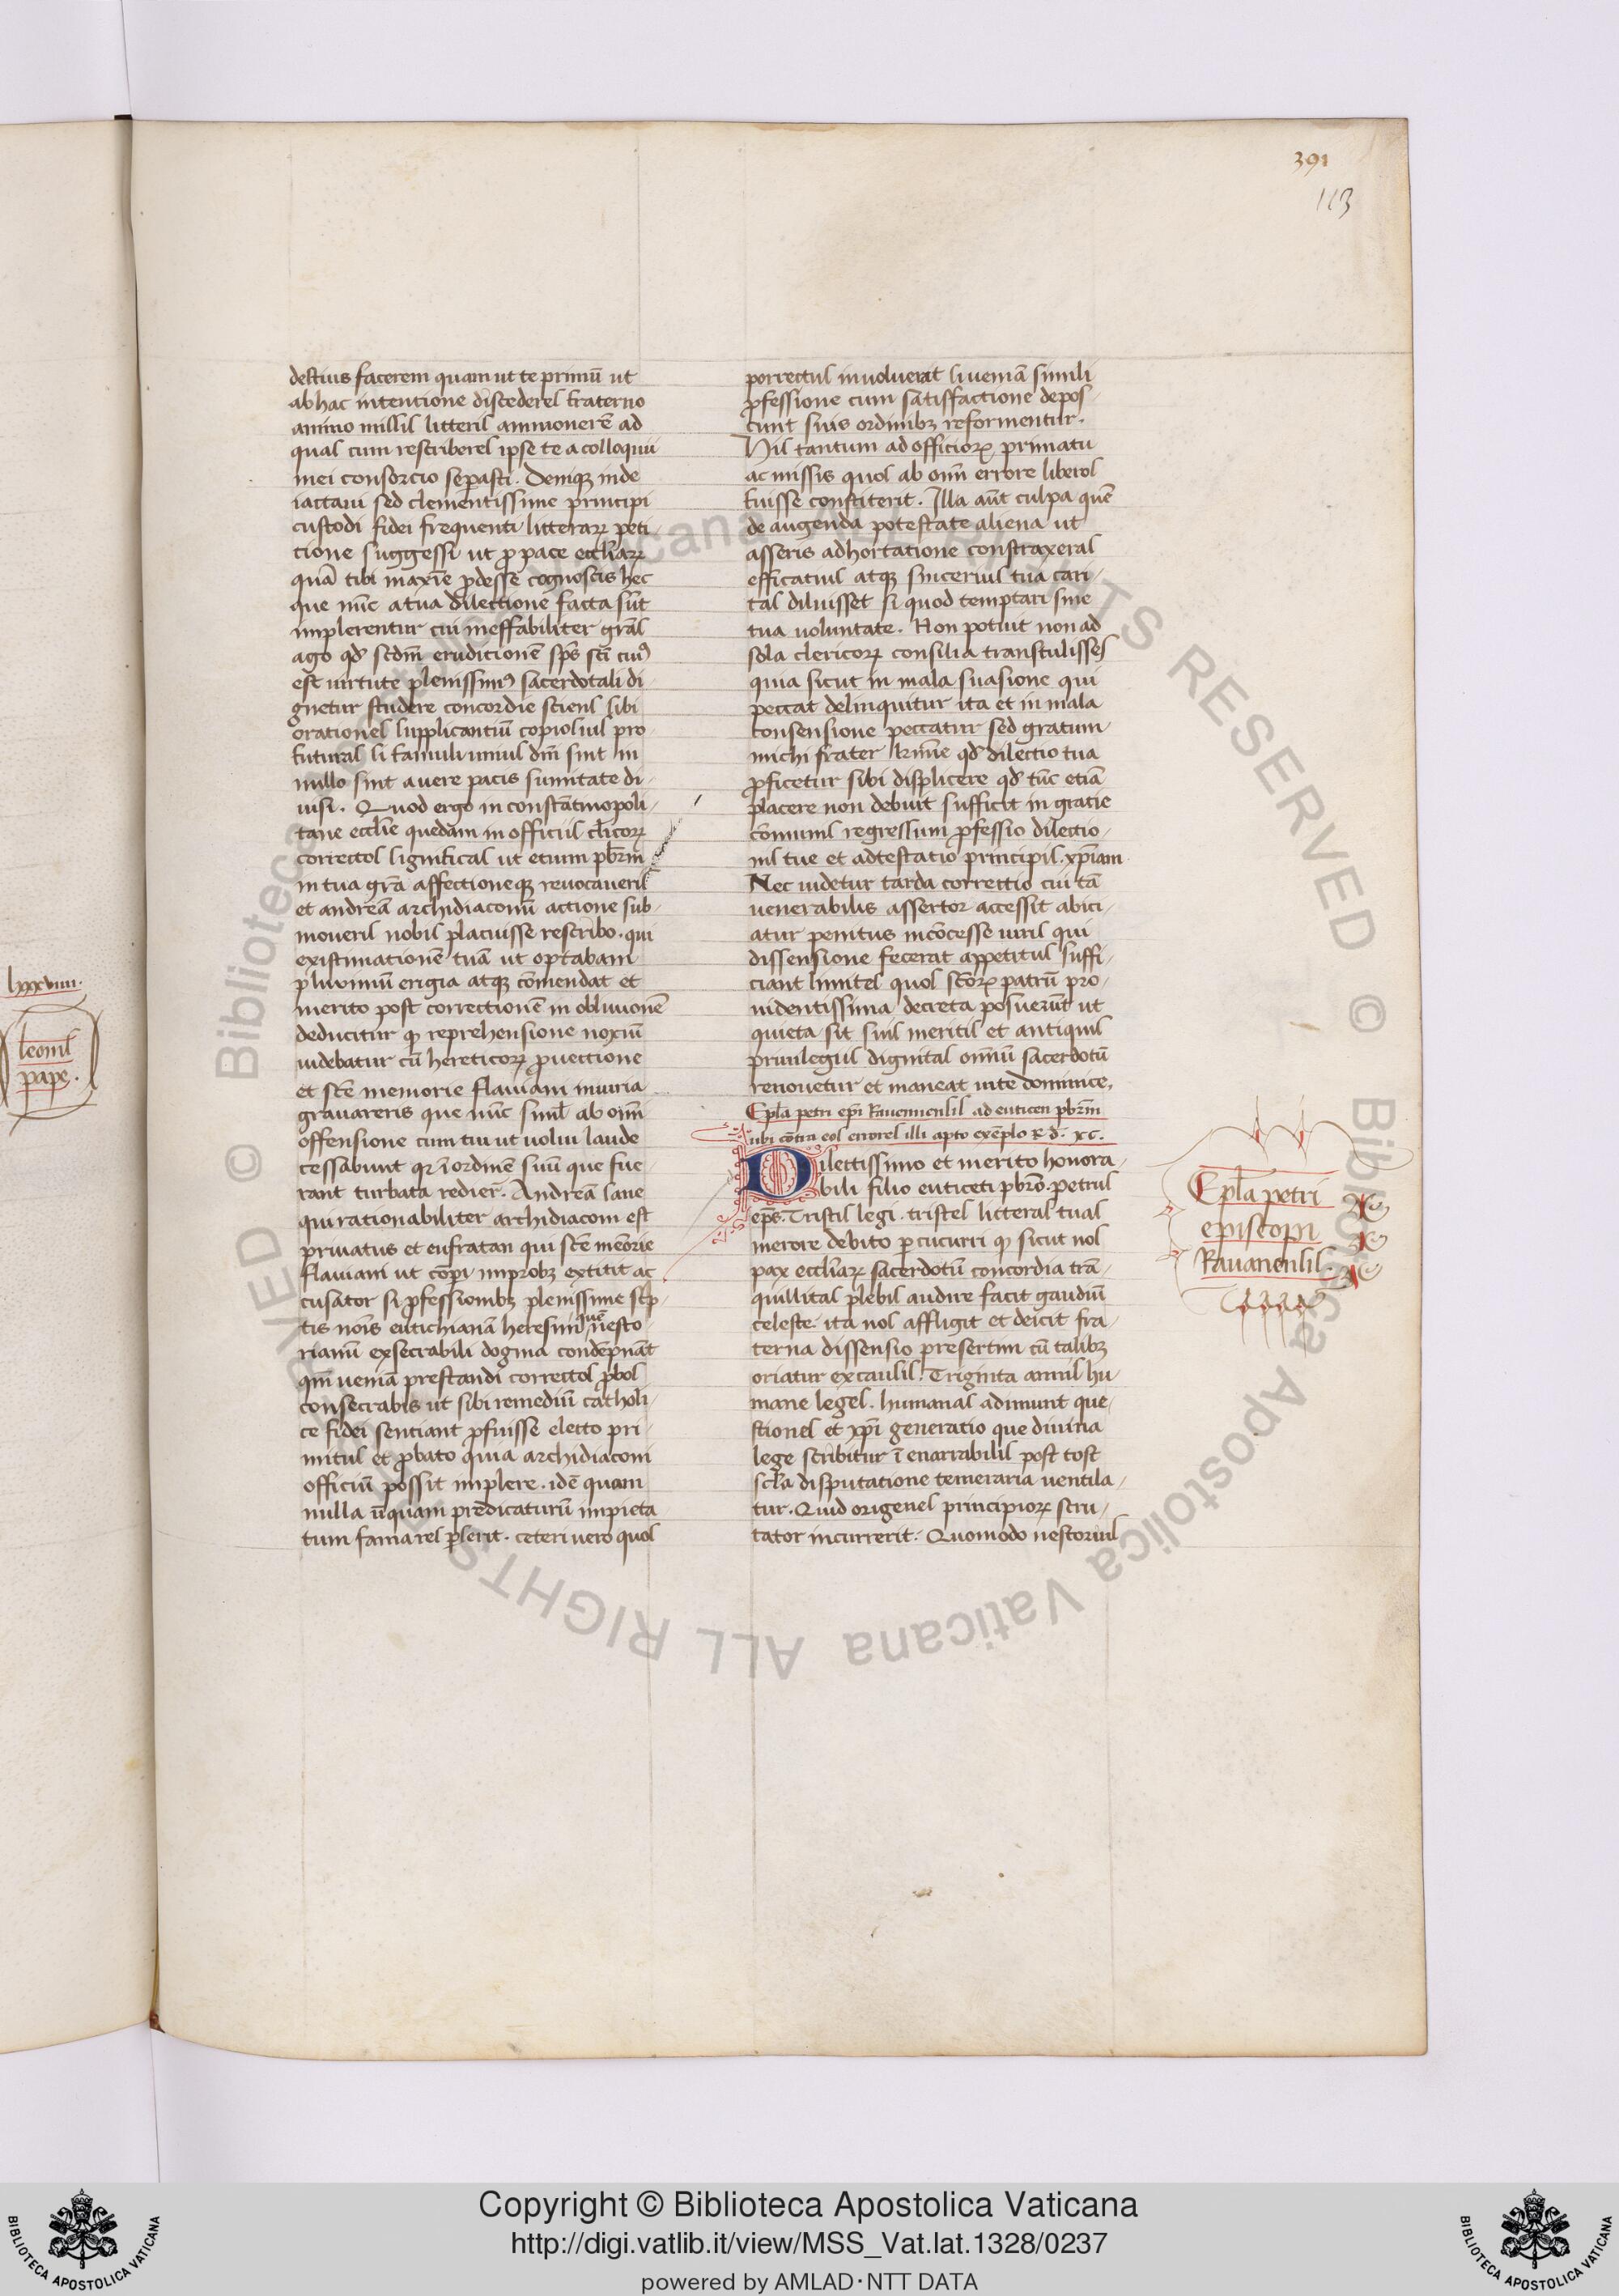 391
113
lxxxviiii.
leonis
pape.
delitius facerem quam ut te primū ut
ab hac intentione discederes fraterno
animo missis litteris ammonerē ad
quas cum rescriberes ipse te a colloquii
mei consorcio separasti. Deniqꝫ inde
iactaui sed clementissime principi
custodi fidei frequenti litterarꝫ peti-
tione suggessi ut ꝓ pace eccl̄iarꝫ
quā tibi maxīe ꝓdesse cognoscis hec
que nūc a tua dilectione facta sūt
implerentur cui ineffabiliter grās
ago qđ scdm̄ eruditionē sp̄s sc̄i cuiꝰ
est uirtute plenissimꝰ sacerdotali di-
gnetur studere concordie sciens sibi
orationes supplicantiū copiosius pro
futuras si famuli unius dn̄i sint in
nullo sint a uere pacis sumitate di-
uisi. Quod ergo in constātinopoli-
tane eccl̄ie quedam in officiis cl̄icorꝫ
correctos significas ut etium pb̄rm̄
in tua grā affectioneqꝫ reuocaueris
et andreā archidiaconū actione sub-
moueris nobis placuisse rescribo. qui
existimationē tuā ut optabam
plurimū erigia atqꝫ cōmendat et
merito post correctionē in obliuionē
deducitur qꝫ reprehensione noxiū
uidebatur cū hereticorꝫ ꝓuectione
et sc̄te memorie flauiani iniuria
grauareris que nūc siml̄ ab om̄i
offensione cum tui ut uolui laude
cessabunt qꝛ ī ordinē suū que fue-
rant turbata redier̄. Andreā sane
qui rationabiliter archidiaconi est
priuatus et eufratan qui sc̄te mēorie
flauiani ut cōperi improbꝫ extitit ac
cusator si ꝓfessionibꝫ plenissime sc̄p
tis nōis eutichianā heresim quē nesto-
rianū exsecrabili dogma condēpnāt
qm̄ ueniā prestandi correctos ꝓbos
consecrabis ut sibi remediū catholi-
ce fidei sentiant ꝓfuisse electo pri-
mitus et ꝓbato quia archidiaconi
officiū possit implere. idē quam
nulla ūquam predicaturū impieta
tum fama resplerit. ceteri uero quos
porrectus inuoluerat si ueniā simili
ꝓfessione cum satisfactione depos-
cunt suis ordinibꝫ reformentur.
Hiis tantum ad officiorꝫ primatu
ac missis quos ab om̄i errore liberos
fuisse constiterit. Illa aūt culpa quē
de augenda potestate aliena ut
asseris adhortatione constraxeras
efficatius atqꝫ sincerius tua cari-
tas diluisset si quod temptari sine
tua uoluntate. Non potuit non ad
sola clericorꝫ consilia transtulisses
quia sicut in mala suasione qui
peccat delinquitur ita et in mala
consensione peccatur sed gratum
michi frater k̄rīme qđ dilectio tua
ꝓficetur sibi displicere qđ tūc etiā
placere non debuit sufficit in gratie
cōmunis regressum ꝓfessio dilectio-
nis tue et adtestatio principis. xp̄iani
Nec uidetur tarda correctio cui tā
uenerabilis assertor accessit abici-
atur penitus incōcesse uiris qui
dissensione fecerat appetitus suffi-
ciant limites quos sc̄orꝫ patrū pro-
uidentissima decreta posuerūt ut
quieta sit suis meritis et antiquis
priuilegiis dignitas omniū sacerdotū
renouetur et maneat uite dominice.
Epl̄a petri ep̄i Rauennensis ad euticen pb̄rm̄
ubi cōtra eos errores illi apto exēplo R d. xc.
Dilectissimo et merito honora-
bili filio euticeti pb̄ro. petrus
ep̄s. Tristis legi. tristes litteras tuas
merore debito ꝑcucurri qꝫ sicut nos
pax eccl̄iarꝫ sacerdotū concordia trā-
quillitas plebis audire facit gaudiū
celeste. ita nos affligit et deicit fra-
terna dissensio presertim cū talibꝫ
oriatur ex causis. Triginta annis hu-
mane leges. humanas adimunt que-
stiones et xp̄i generatio que diuina
lege scribitur ī enarrabilis post tost
scl̄a disputatione temeraria uentila-
tur. Quid origenes principiorꝫ scru-
tator incurrerit. Quomodo nestorius
Epl̄a petri
episcopi
Rauanensis.
Copyright © Biblioteca Apostolica Vaticana
http://digi.vatlib.it/view/MSS_Vat.lat.1328/0237
powered by AMLAD·NTT DATA
BIBLIOTECA APOSTOLICA VATICANA
BIBLIOTECA APOSTOLICA VATICANA
© Biblioteca Apostolica Vaticana ALL RIGHTS RESERVED © Biblioteca Apostolica Vaticana ALL RIGHTS RESERVED